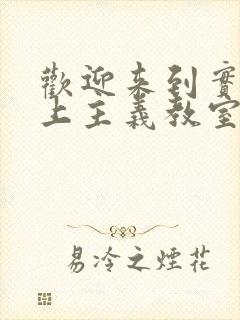 歡迎來到實
上主義教室
易冷之煙花